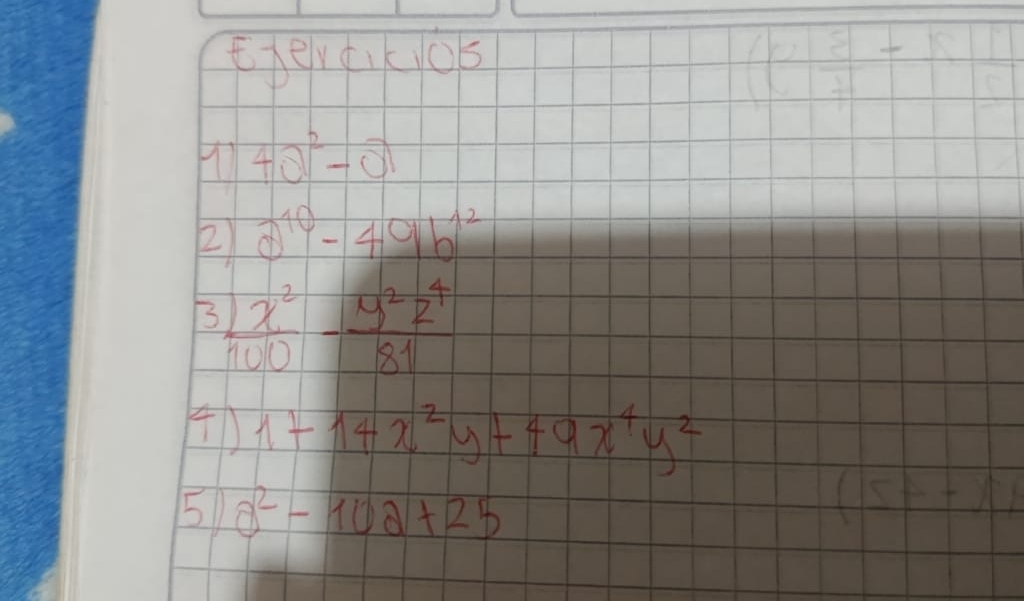 Ejercicios
1) 4a² - a
2) a¹⁰ - 49b¹²
3) x²/100 - y²z⁴/81
4) 1 + 14x²y + 49x⁴y²
5) a² - 10a + 25